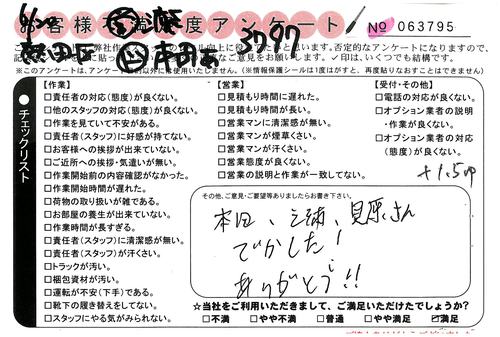 お客様不満度アンケート
No 063795
※このアンケートは、アンケート目的以外には使用いたしません。(※情報保護シールは1度はがすと、再度貼りなおすことはできません)
3797
チェックリスト
【作業】
□責任者の対応(態度)が良くない。
□他のスタッフの対応(態度)が良くない。
□作業を見ていて不安がある。
□責任者(スタッフ)に好感が持てない。
□お客様への挨拶が出来ていない。
□ご近所への挨拶・気遣いが無い。
□作業開始前の内容確認がなかった。
□作業開始時間が遅れた。
□荷物の取り扱いが雑である。
□お部屋の養生が出来ていない。
□作業時間が長すぎる。
□責任者(スタッフ)に清潔感が無い。
□責任者(スタッフ)が汗さい。
□トラックが汚い。
□梱包資材が汚い。
□運転が不安(下手)である。
□靴下の履き替えをしてない。
□スタッフにやる気がみられない。
【営業】
□見積もり時間に遅れた。
□見積もり時間が長い。
□営業マンに清潔感が無い。
□営業マンが煙草くさい。
□営業マンが汗さい。
□営業態度が良くない。
□営業の説明と作業が一致してない。
【受付・その他】
□電話の対応が良くない。
□オプション業者の説明
・作業が良くない。
□オプション業者の対応
(態度)が良くない。
その他、ご意見・ご要望等ありましたらお書き下さい。
本田、三浦、貝原さん
でかした!
ありがとう!!
☆当社をご利用いただきまして、ご満足いただけたでしょうか?
□不満 □やや不満 □普通 □やや満足 ☑満足